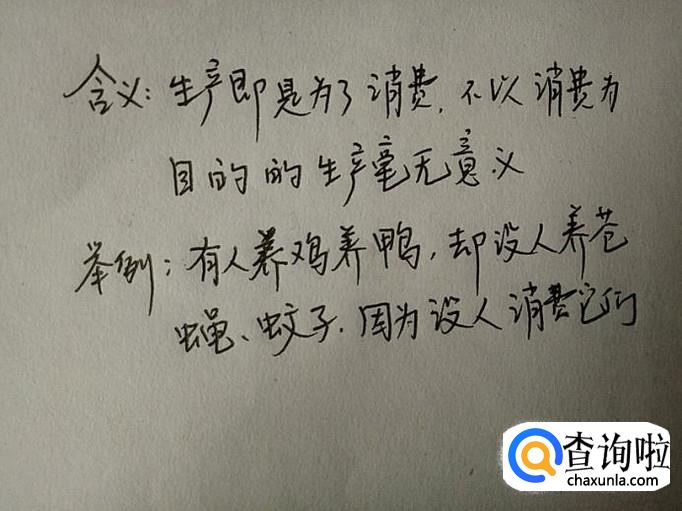 含义：生产即是为了消费，不以消费为
目的的生产毫无意义
举例：有人养鸡养鸭，却没人养苍
蝇、蚊子．因为没人消费它们
查询啦
chaxunla.com